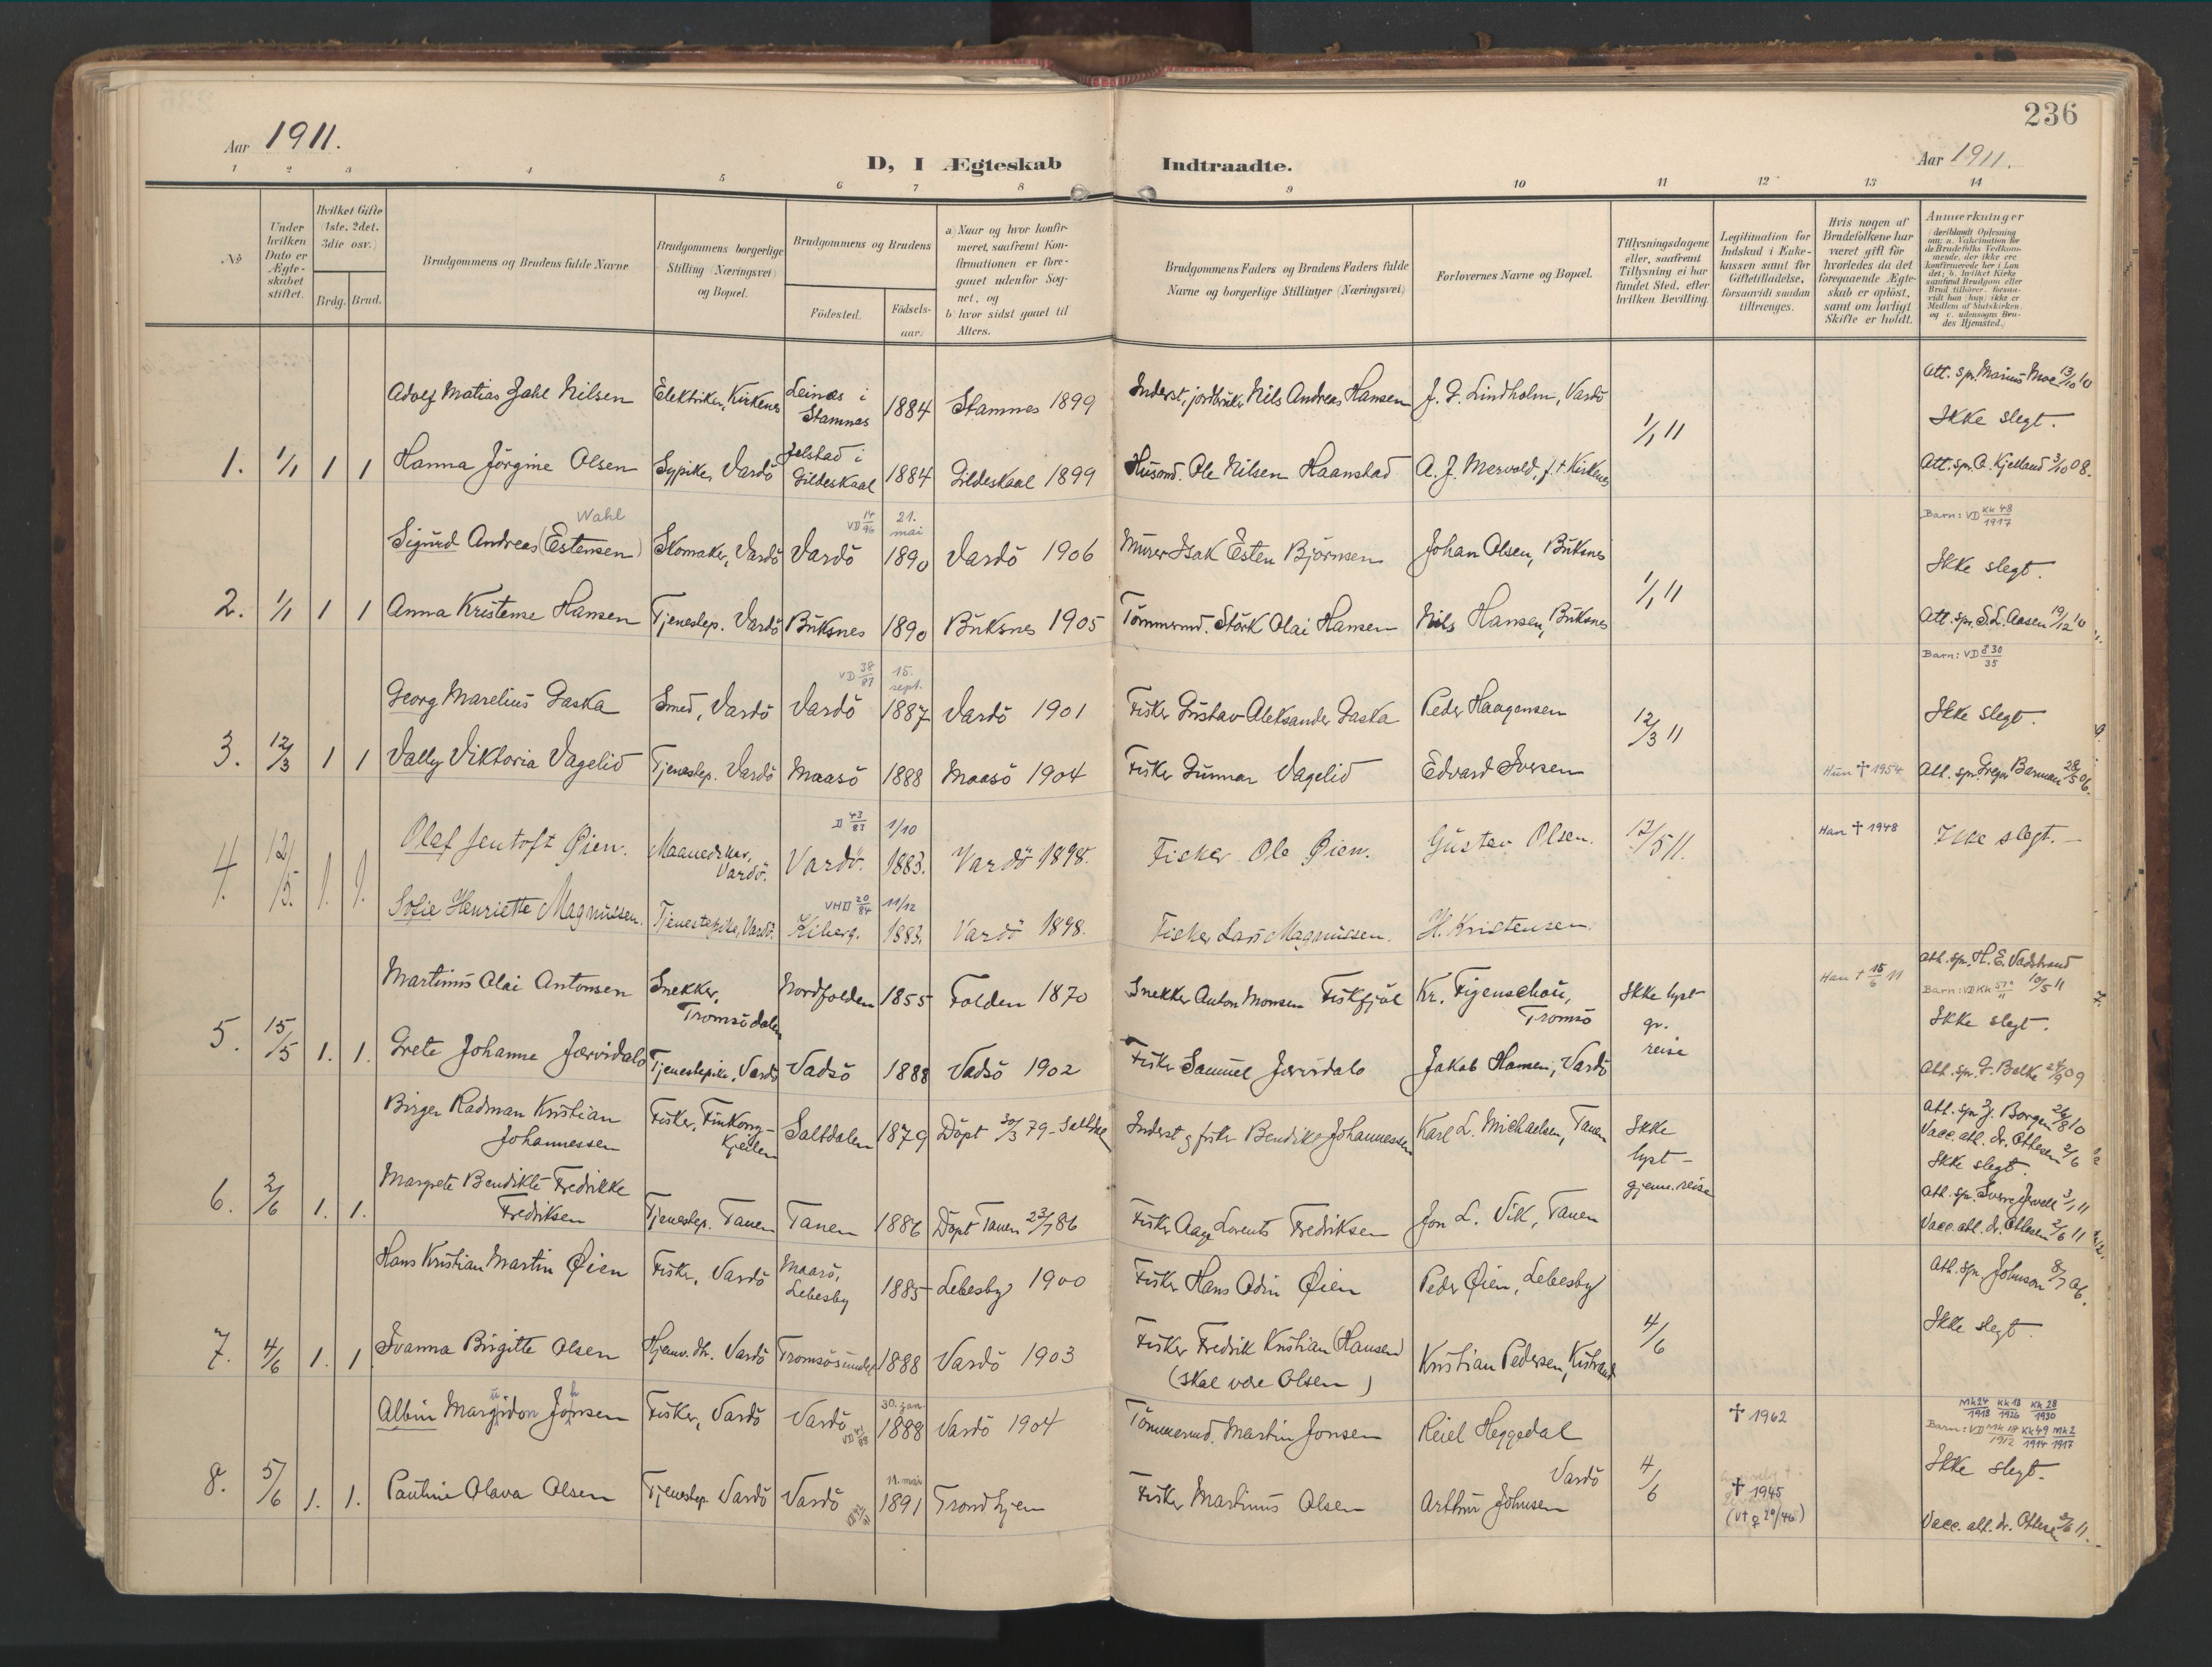 236
Aar 1911.
D, I Ægteskab Indtraadte.
Aar 1911.
1 2 3 4 5 6 7 8 9 10 11 12 13 14
No
Under hvilken Dato er Ægteskabet stiftet.
Hvilket Gifte (1ste, 2det, 3die osv.)
Brdg. Brud.
Brudgommens og Brudens fulde Navne
Brudgommens borgerlige Stilling (Næringsvei) og Bopæl.
Brudgommens og Brudens
Födested. Födselsaar.
a) Naar og hvor konfirmeret, saafremt Konfirmationen er foregaaet udenfor Sognet, og
b) hvor sidst gaaet til Alters.
Brudgommens Faders og Brudens Faders fulde Navne og borgerlige Stillinger (Næringsvei)
Forlovernes Navne og Bopæl.
Tillysningsdagene eller, saafremt Tillysning ei har fundet Sted, efter hvilken Bevilling.
Legitimation for Indskud i Enkekassen samt for Giftetilladelse, forsaavidt saadan tiltrænges.
Hvis nogen af Brudefolkene har været gift før hvorledes da det foregaaende Ægteskab er opløst, samt om lovligt Skifte er holdt.
Anmærkninger (deriblandt Oplysning om: a. Vakcination for de Brudefolks Vedkommende, der ikke ere konfirmerede her i Landet; b. hvilket Kirkesamfund Brudgom eller Brud tilhører, forsaavidt han (hun) ikke er Medlem af Statskirken, og c. udensogns Brudes Hjemsted.)
Adolf Matias Jahl Nilsen Elektriker, Kirkenes Leines i Stamnes 1884 Stamnes 1899 Inderst, jordbruker Nils Andreas Hansen J. G. Lindholm, Vardö Att. spr. Marius Moe 13/10 10
1/1 11 Ikke slegt.
1. 1/1 1 1 Hanna Jörgine Olsen Sypike, Vardö Jelstad i Gildeskaal 1884 Gildeskaal 1899 Husmd. Ole Nilsen Haanstad A. J. Mervold, f. t. Kirkenes Att. spr. O. Kjelland 3/10 08.
Wahl VD 14/96 21. mai Barn: VD Kk 48/1917
Sigurd Andreas (Estensen) Skomaker, Vardö Vardö 1890 Vardö 1906 Murer Isak Esten Björnsen Johan Olsen, Buksnes
1/1 11 Ikke slegt.
2. 1/1 1 1 Anna Kristense Hansen Tjenestep. Vardö Buksnes 1890 Buksnes 1905 Tömmermd. Störk Olai Hansen Nils Hansen, Buksnes Att. spr. S. L. Aasen 19/12 10
VD 38/87 15. sept. Barn: VD 8 30/35
Georg Marelius Gaska Smed, Vardö Vardö 1887 Vardö 1901 Fisker Gustav Aleksander Gaska Peder Haagensen Ikke slegt.
12/3 11
3. 12/3 1 1 Vally Viktoria Vagelid Tjenestep. Vardö Maasö 1888 Maasö 1904 Fisker Gunnar Vagelid Edvard Iversen Hun † 1954 Att. spr. Greger Barman 28/5 06.
D 43/83 1/10
Olaf Jentoft Øien. Maanedskar, Vardö. Vardö. 1883. Vardö 1898. Fisker Ole Øien. Gustav Olsen. 12/5 11. Han † 1948 Ikke slegt.
4. 12/5. 1. 1. VHD 20/84 11/12
Sofie Henriette Magnussen. Tjenestepike, Vardö. Kiberg. 1883. Vardö 1898. Fisker Lars Magnussen. H. Kristensen.
Martinus Olai Antonsen Snekker, Tromsödalen Nordfolden 1855 Folden 1870 Snekker Anton Monsen Fiskfjöl Kr. Figenschou, Tromsö Ikke lyst gr. reise Han † 15/6 11 Att. spr. H. E. Vadstrand 10/5 11
Barn: VD Kk 57a/11
Ikke slegt.
5. 15/5 1. 1. Grete Johanne Jærvidalo Tjenestepike, Vardö Vadsö 1888 Vadsö 1902 Fisker Samuel Jærvidalo Jakob Hansen, Vardö Att. spr. G. Balke 24/9 09
Birger Radman Kristian Johannessen Fisker, Finkongkjeilen Saltdalen 1879 Döpt 30/3 79 - Saltdal Inderst og fisker Bendikt Johannessen Karl L. Michaelsen, Tanen Ikke lyst - gjenn. reise Att. spr. J. Borgen 26/8 10
Vacc. att. dr. Ottesen 2/6
Ikke slegt.
6. 2/6 1. 1. Margrete Bendikte Fredrikke Fredriksen Tjenestep. Tanen Tanen 1886 Döpt Tanen 23/7 86 Fisker Aage Lorents Fredriksen Jon L. Vik, Tanen Att. spr. Sverre Jervell 3/1 11
Vacc. att. dr. Ottesen 2/6 11
Hans Kristian Martin Øien Fisker, Vardö Maarö, Lebesby 1885 Lebesby 1900 Fisker Hans Odin Øien Peder Øien, Lebesby Att. spr. Johnson 8/7 06.
4/6 Ikke slegt.
7. 4/6 1. 1 Ivanna Birgitte Olsen Hjemv. dtr. Vardö Tromsösundet 1888 Vardö 1903 Fisker Fredrik Kristian (Hansen) (skal vere Olsen) Kristian Pedersen, Kistrand
30. jan. Mk 24/1918 Kk 18/1926 Kk 28/1930
Albin Margidon Jonsen Fisker, Vardö Vardö 1888 Vardö 1904 Tömmermd. Martin Jonsen Reiel Heggedal † 1962 Barn: VD Mk 18/1912 Kk 49/1914 Mk 2/1917
Vardö 4/6 Ikke slegt.
8. 5/6 1. 1. Pauline Olava Olsen Tjenestep. Vardö Vardö 11. mai 1891 Trondhjem Fisker Martinus Olsen Arthur Johnsen † 1945 (Vt ♀ 20/46) Vacc. att. dr. Ottesen 2/6 11.